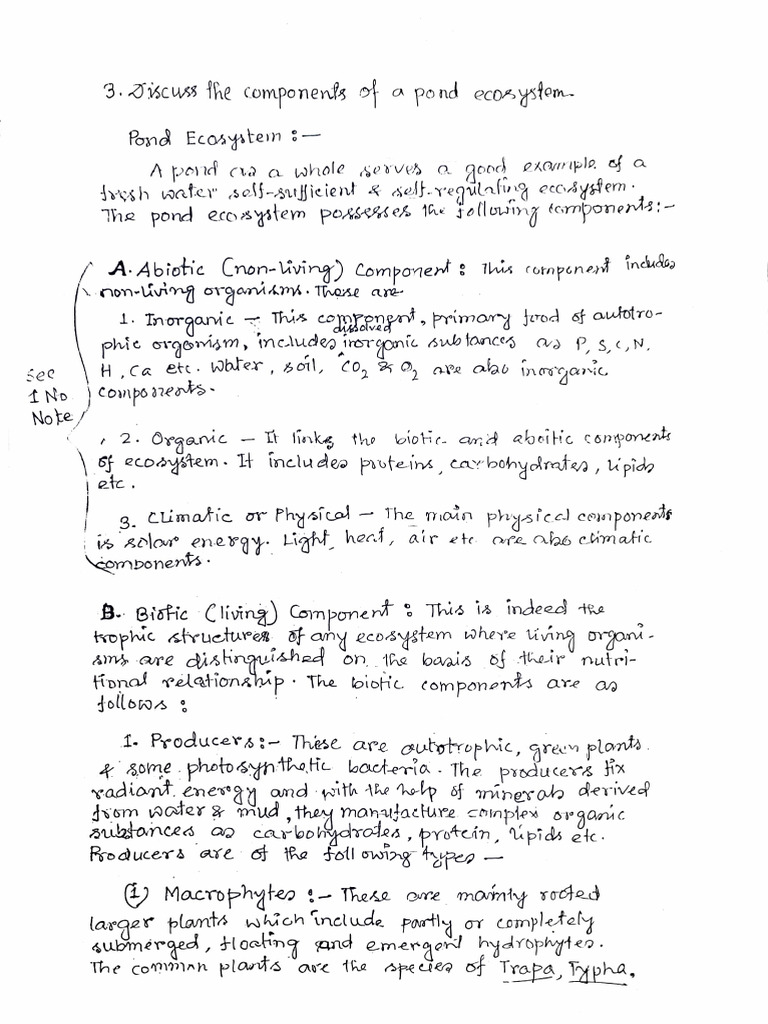 3. Discuss the components of a pond ecosystem.
Pond Ecosystem :—
A pond as a whole serves a good example of a
fresh water self-sufficient & self-regulating ecosystem.
The pond ecosystem possesses the following components:-
A. Abiotic (non-living) Component : This component includes
non-living organisms. These are
1. Inorganic — This component, primary food of autotro-
phic orgonism, includes dissolved inorganic substances as P, S, C, N,
H, Ca etc. Water, soil, CO2 & O2 are also inorganic
components.
See
1 No
Note
2. Organic — It links the biotic and aboitic components
of ecosystem. It includes proteins, carbohydrates, lipids
etc.
3. Climatic or Physical — The main physical components
is solar energy. Light, heat, air etc are also climatic
components.
B. Biotic (living) Component : This is indeed the
trophic structures of any ecosystem where living organi-
sms are distinguished on the basis of their nutri-
tional relationship. The biotic components are as
follows :
1. Producers:- These are autotrophic, green plants
& some photosynthetic bacteria. The producers fix
radiant energy and with the help of minerals derived
from water & mud, they manufacture complex organic
substances as carbohydrates, protein, lipids etc.
Producers are of the following types —
(1) Macrophytes :- These are mainly rooted
larger plants which include partly or completely
submerged, floating and emergent hydrophytes.
The common plants are the species of Trapa, Typha,